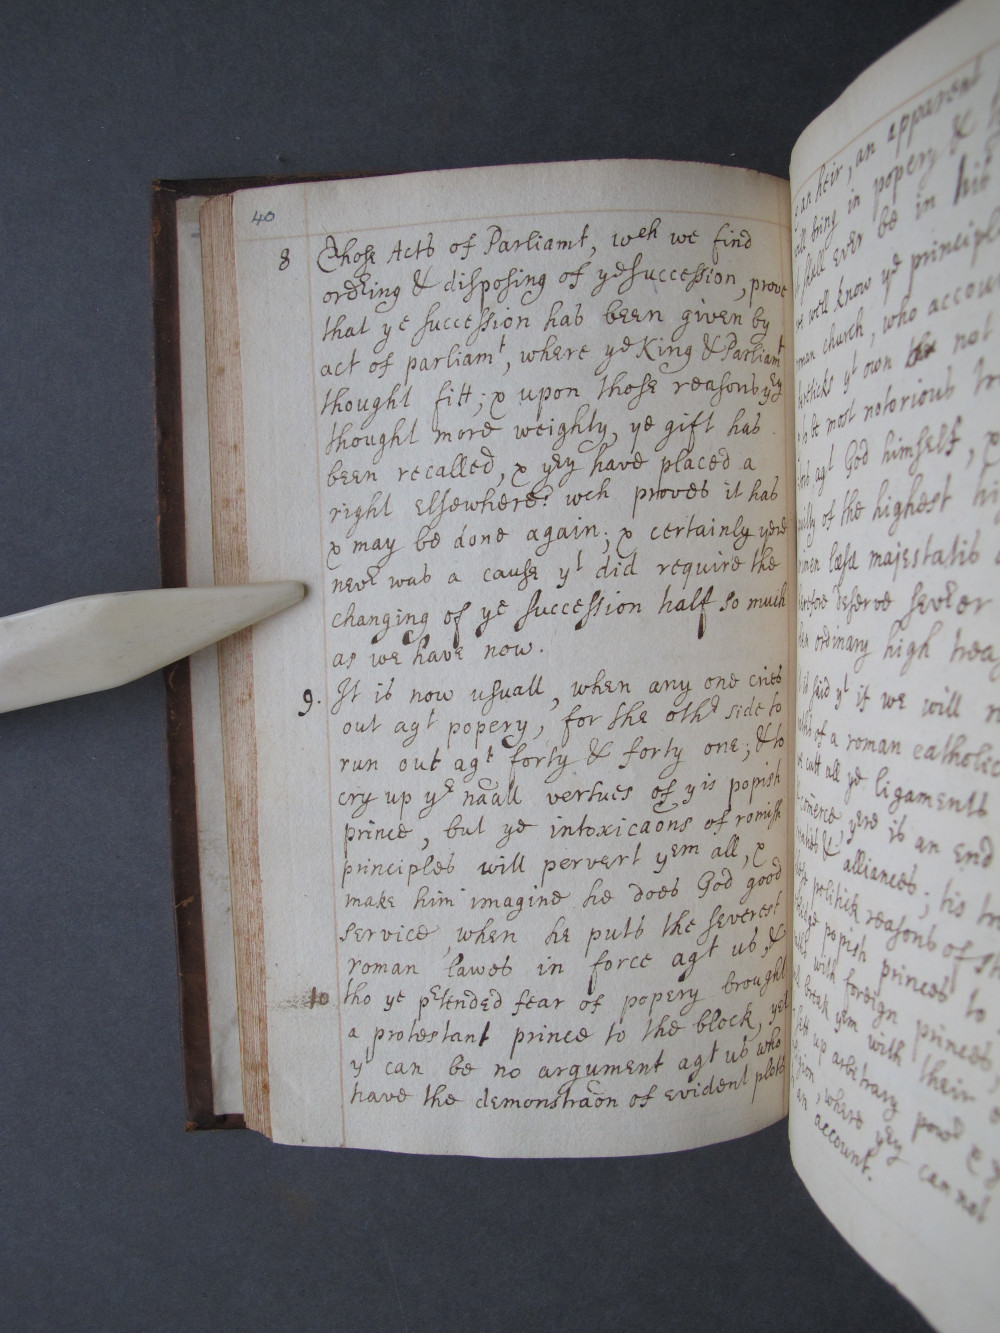 40
8 Those Acts of Parliamt, wch we find
ordeing & disposing of ye succession, prove
that ye succession has been given by
act of parliamt, where ye King & Parliamt
thought fitt; & upon those reasons yey
thought more weighty, ye gift has
been recalled, & yey have placed a
right elsewhere: wch proves it has
& may be done again; & certainly yere
never was a cause yt did require the
changing of ye succession half so much
as we have now.
9. It is now usuall, when any one cries
out agt popery, for the other side to
run out agt forty & forty one; & to
cry up ye nãall vertues of yis popish
prince, but ye intoxicaõns of romish
principles will pervert yem all, &
make him imagine he does God good
service, when he puts the severest
roman lawes in force agt us, &
10 tho ye pretended fear of popery brought
a protestant prince to the block, yet
yt can be no argument agt us who
have the demonstraõn of evident plots
an heir, an apparent
bring in popery &
shall ever be in his
we well know ye principle
church, who accou
hereticks yt own not
be most notorious
agt God himself, &
guilty of the highest
crimen læsæ majestatis
therefore deserve severer
ordinary high trea
it is said yt if we will
of a roman catholic
cutt all ye ligaments
comerce, yere is an end
& alliances; his
politick reasons of
popish princes to
with foreign princes,
break yem with their
sett up arbetrary power &
where yey cannot
an account.